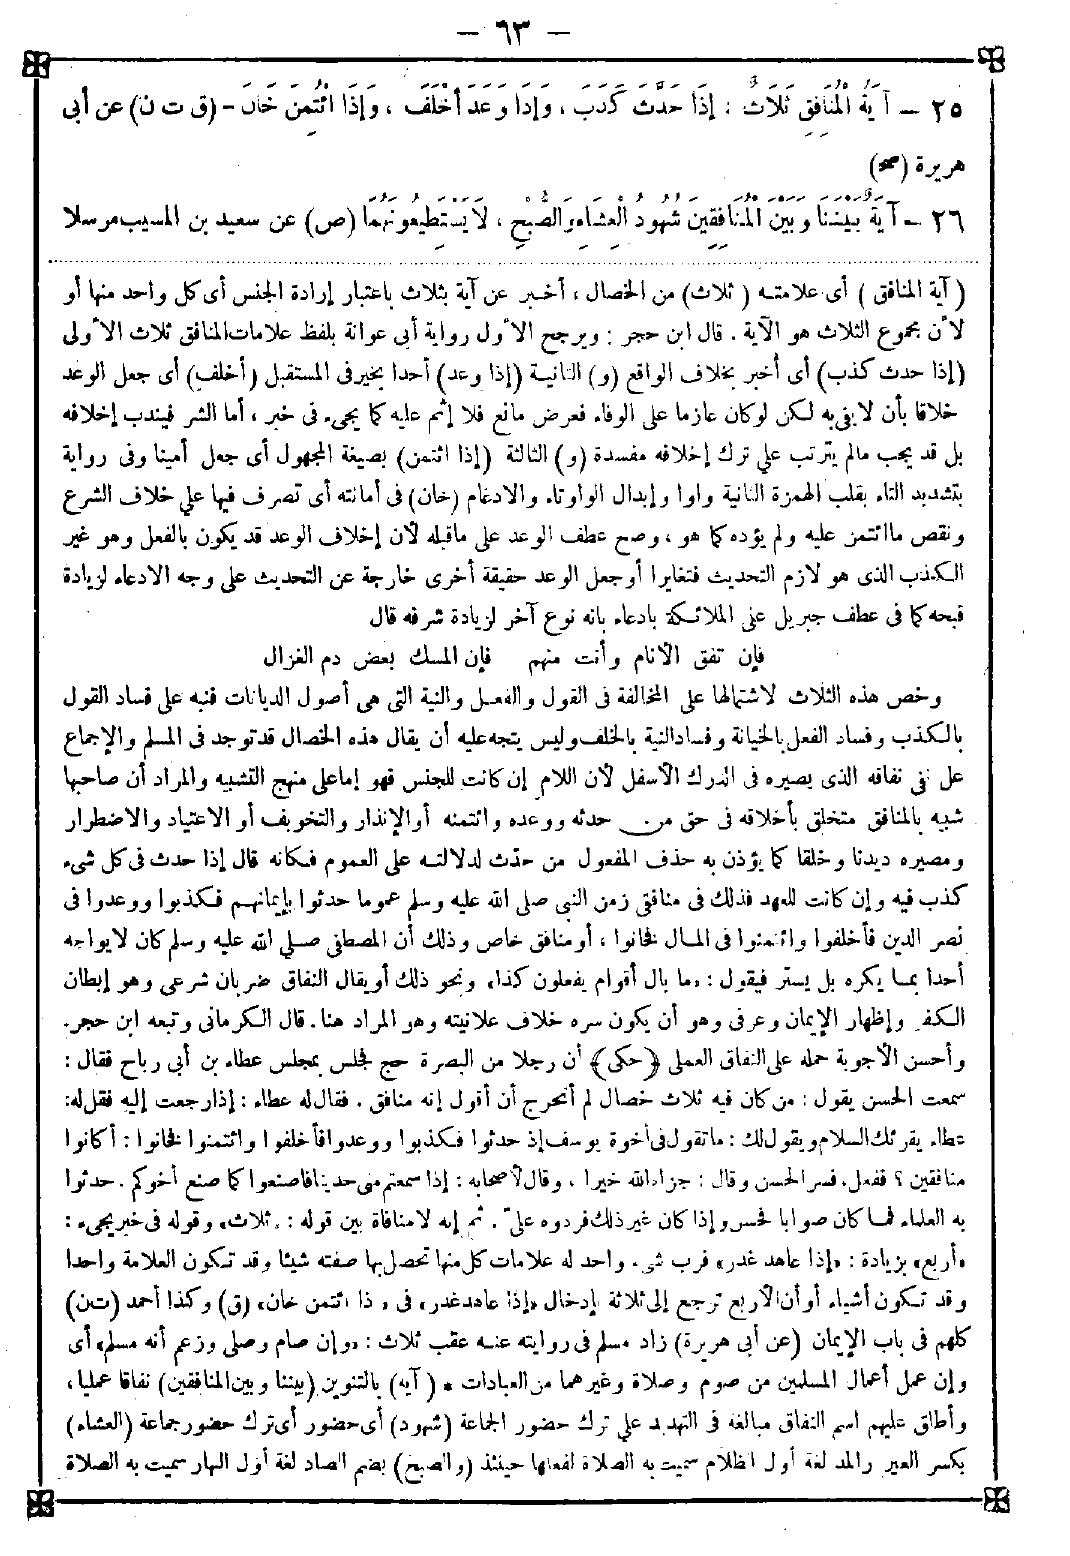 — ٦٣ —
٢٥ — آيَةُ الْمُنَافِقِ ثَلَاثٌ : إِذَا حَدَّثَ كَذَبَ ، وَإِذَا وَعَدَ أَخْلَفَ ، وَإِذَا ائْتُمِنَ خَانَ – (ق ت ن) عن أبى
هريرة (صح)
٢٦ – آيَةٌ بَيْنَنَا وَبَيْنَ الْمُنَافِقِينَ شُهُودُ الْعِشَاءِ وَالصُّبْحِ ، لَا يَسْتَطِيعُونَهُمَا (ص) عن سعيد بن المسيب مرسلا
( آية المنافق ) أى علامتـه ( ثلاث) من الخصال ، أخـبر عن آية بثلاث باعتبار إرادة الجنس أى كل واحد منها أو
لأن مجموع الثلاث هو الآية . قال ابن حجر : ويرجح الأول رواية أبى عوانة بلفظ علامات المنافق ثلاث الأولى
(إذا حدث كذب) أى أخبر بخلاف الواقع (و) الثانيـة (إذا وعد) أحدا بخير فى المستقبل (أخلف) أى جعل الوعد
خلافا بأن لا يفى به لـكن لو كان عازما على الوفاء فعرض مانع فلا إثم عليه كما يجىء فى خبر ، أما الشر فيندب إخلافه
بل قد يجب مالم يترتب على ترك إخلافه مفسدة (و) الثالثة (إذا ائتمن) بصيغة المجهول أى جعل أمينا وفى رواية
بتشديد التاء بقلب الهمزة الثانية واوا وإبدال الواو تاء والادغام (خان) فى أمانته أى تصرف فيها على خلاف الشرع
ونقص ما ائتمن عليه ولم يؤده كما هو ، وصح عطف الوعد على ماقبله لأن إخلاف الوعد قد يكون بالفعل وهو غير
الـكذب الذى هو لازم التحديث فتغايرا أو جعل الوعد حقيقة أخرى خارجة عن التحديث على وجه الادعاء لزيادة
قبحه كما فى عطف جبريل على الملائـكة بادعاء بانه نوع آخر لزيادة شرفه قال
فإن تفق الأنام وأنت منهم    فإن المسك بعض دم الغزال
وخص هذه الثلاث لاشتمالها على المخالفة فى القول والفعـل والنية التى هى أصول الديانات فنبه على فساد القول
بالـكذب وفساد الفعل بالخيانة وفساد النية بالخلف وليس يتجه عليه أن يقال هذه الخصال قد توجد فى المسلم والإجماع
على نفى نفاقه الذى يصيره فى الدرك الأسفل لأن اللام إن كانت للجنس فهو إما على منهج التشبيه والمراد أن صاحبها
شبيه بالمنافق متخلق بأخلاقه فى حق من حدثه ووعده وائتمنه أو الإنذار والتخويف أو الاعتياد والاضطرار
ومصيره ديدنا وخلقا كما يؤذن به حذف المفعول من حدث لدلالتـه على العموم فـكانه قال إذا حدث فى كل شىء
كذب فيه وإن كانت للعهد فذلك فى منافقى زمن النبى صلى الله عليه وسلم عموما حدثوا بإيمانهـم فـكذبوا ووعدوا فى
نصر الدين فأخلفوا وائتمنوا فى المـال فخانوا ، أو منافق خاص وذلك أن المصطفى صـلى الله عليه وسلم كان لا يواجه
أحدا بمـا يكره بل يستر فيقول : «ما بال أقوام يفعلون كذا» ونحو ذلك أو يقال النفاق ضربان شرعى وهو إبطان
الـكفر وإظهار الإيمان وعرفى وهو أن يكون سره خلاف علانيته وهو المراد هنا . قال الـكرمانى وتبعه ابن حجر.
وأحسن الأجوبة حمله على النفاق العملى (حكى) أن رجلا من البصرة حج فجلس بمجلس عطاء بن أبى رباح فقال :
سمعت الحسن يقول : من كان فيه ثلاث خصال لم أتحرج أن أقول إنه منافق . فقال له عطاء : إذا رجعت إليه فقل له:
عطاء يقرئك السلام ويقول لك : ما تقول فى أخوة يوسف إذ حدثوا فـكذبوا ووعدوا فأخلفوا وائتمنوا فخانوا : أكانوا
منافقين ؟ ففعل . فسر الحسن وقال : جزاء الله خيرا ، وقال لأصحابه : إذا سمعتم منى حديثا فاصنعوا كما صنع أخوكم . حدثوا
به العلماء فمـا كان صوابا فحسن وإذا كان غير ذلك فردوه علىّ . ثم إنه لا منافاة بين قوله : «ثلاث» وقوله فى خبر يجىء :
«أربع» بزيادة : «إذا عاهد غدر» فرب شىء واحد له علامات كل منها تحصل بها صفته شيئا وقد تـكون العلامة واحدا
وقد تـكون أشياء أو أن الأربع ترجع إلى ثلاثة بإدخال «إذا عاهد غدر» فى «إذا ائتمن خان» (ق) وكذا أحمد (ت ن)
كلهم فى باب الإيمان (عن أبى هريرة) زاد مسلم فى روايته عنـه عقب ثلاث : «وإن صام وصلى وزعم أنه مسلم» أى
وإن عمل أعمال المسلمين من صوم وصلاة وغيرهما من العبادات * ( آية) بالتنوين (بيننا وبين المنافقين) نفاقا عمليا ،
وأطلق عليهم اسم النفاق مبالغة فى التهديد على ترك حضور الجماعة (شهود) أى حضور أى ترك حضور جماعة (العشاء)
بكسر العين والمد لغة أول الظلام سميت به الصلاة لفعلها حينئذ (والصبح) بضم الصاد لغة أول النهار سميت به الصلاة